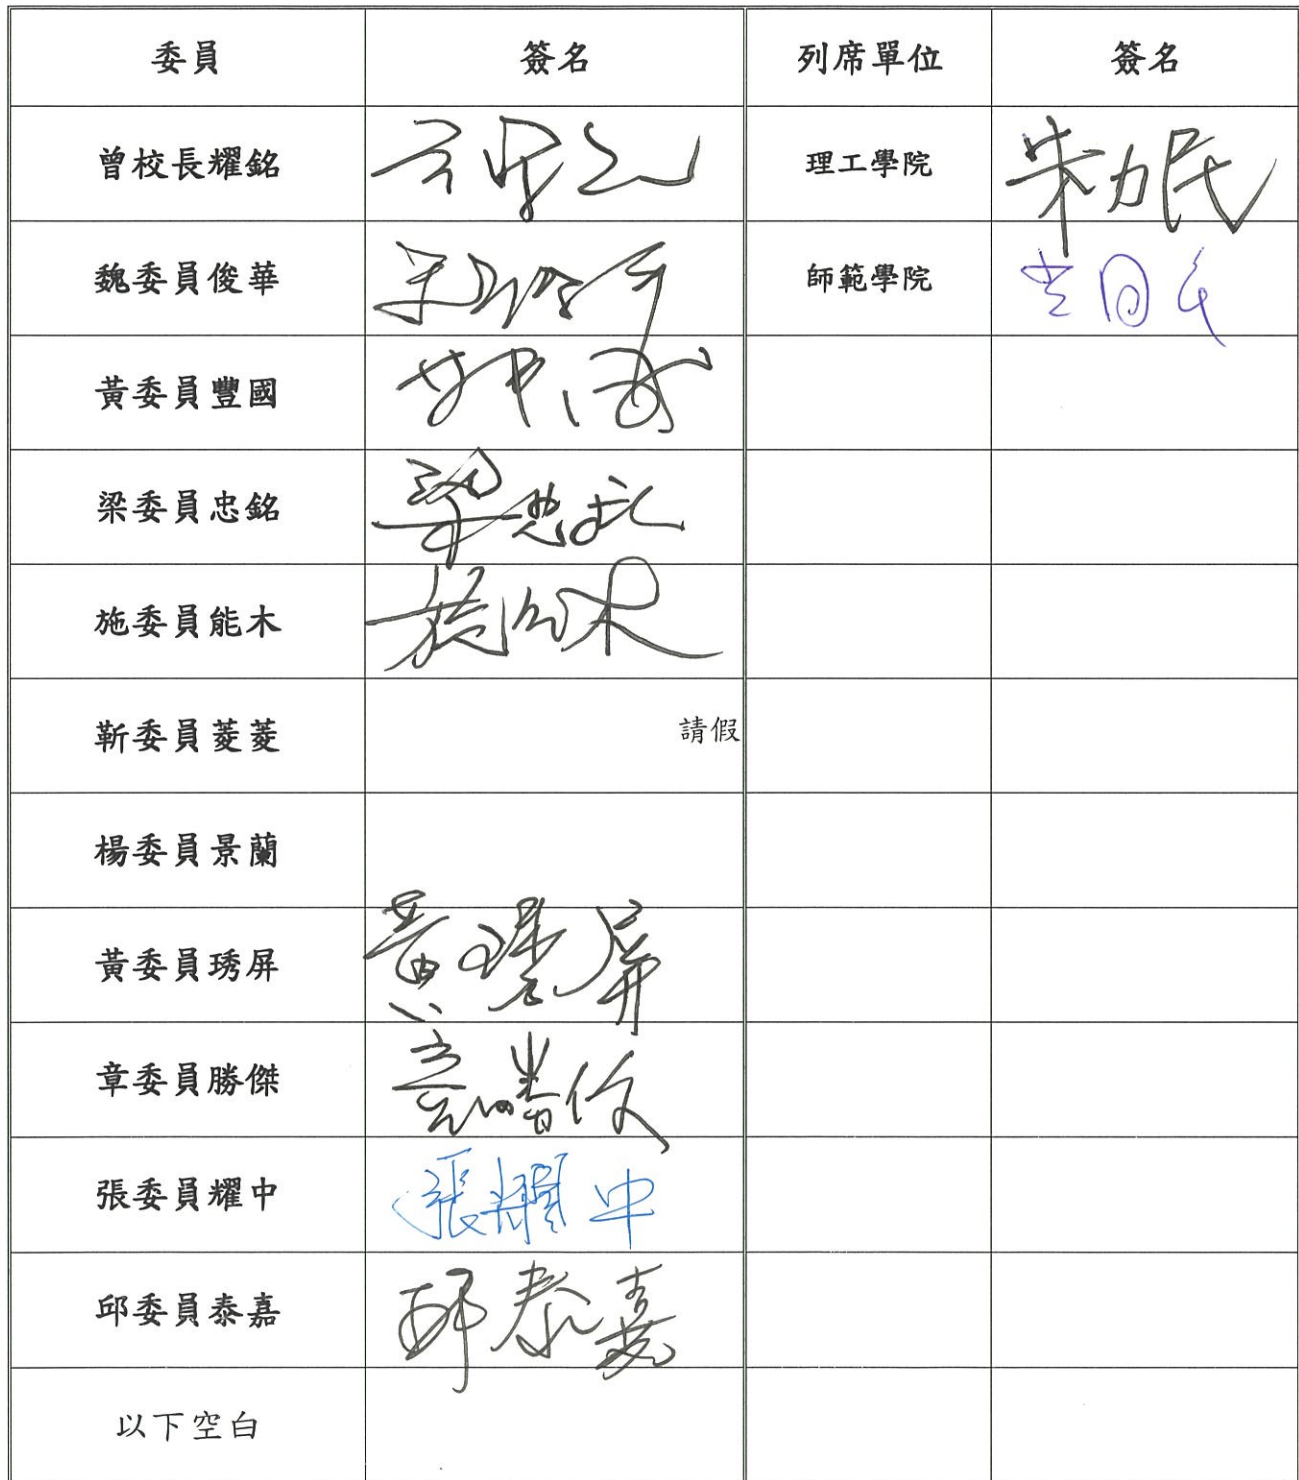 委員 簽名 列席單位 簽名
曾校長耀銘 理工學院 朱力民
魏委員俊華 師範學院
黃委員豐國
梁委員忠銘 梁忠銘
施委員能木 施能木
靳委員菱菱 請假
楊委員景蘭
黃委員琇屏 黃琇屏
章委員勝傑 章勝傑
張委員耀中 張耀中
邱委員泰嘉 邱泰嘉
以下空白